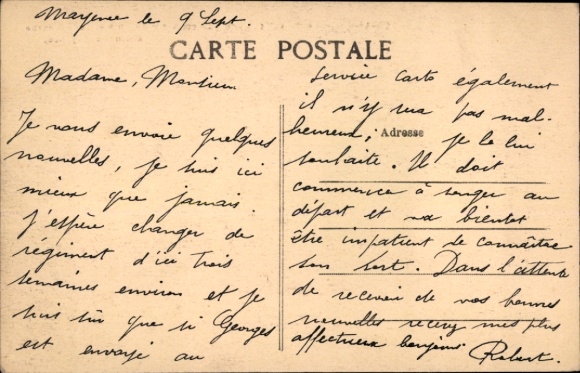 Mayence le 9 Sept.
CARTE POSTALE
Madame, Monsieur
Je vous envoie quelques
nouvelles, je suis ici
mieux que jamais.
J'espère changer de
régiment d'ici trois
semaines environ et je
suis sûr que si Georges
est envoyé au
service carto également
il n'y sera pas mal-
heureux, je le lui
Adresse
souhaite. Il doit
commencer à songer au
départ et va bientôt
être impatient de connaître
son sort. Dans l'attente
de recevoir de vos bonnes
nouvelles recevez mes plus
affectueux bonjours
Robert.